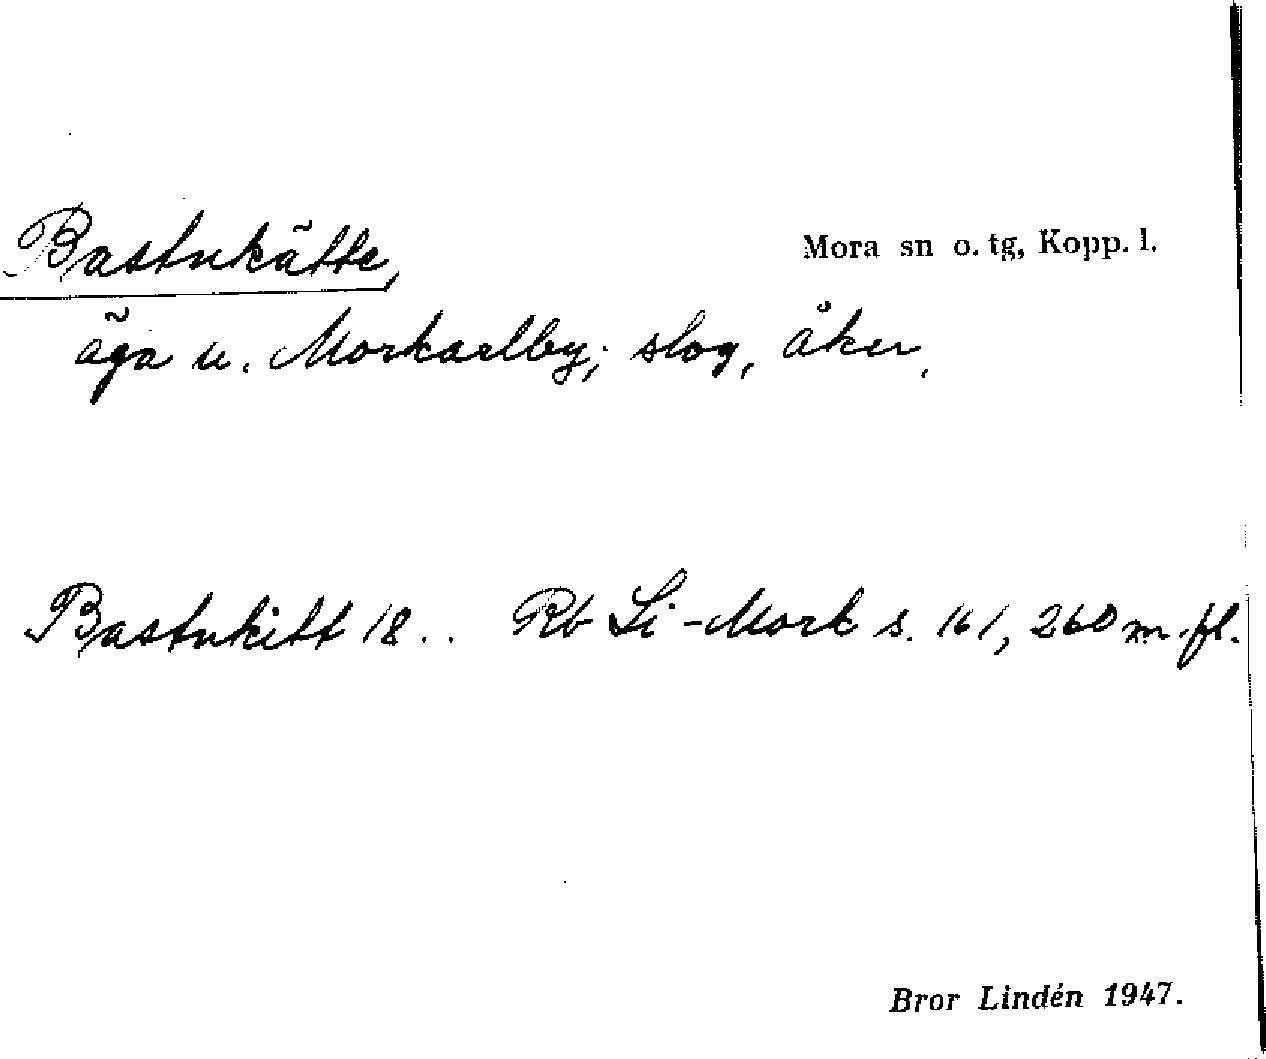 Bastukätte,
Mora sn o. tg, Kopp. l.
äga u. Morkarlby; slog, åker.
Bastukitt 18.. Rb Li-Mork s. 161, 260 m. fl.
Bror Lindén 1947.